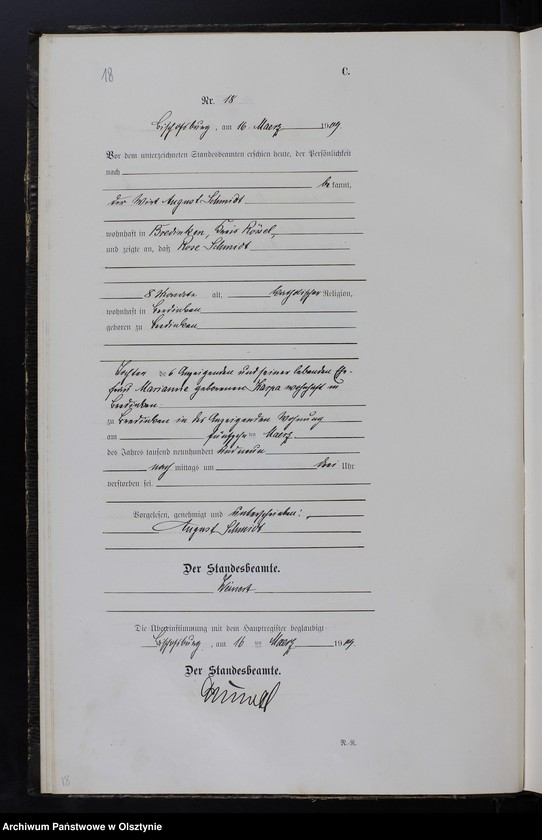 18
C.
Nr. 18
Bischofsburg, am 16 Maerz 1909.
Vor dem unterzeichneten Standesbeamten erschien heute, der Persönlichkeit
nach
bekannt,
der Wirt August Schmidt
wohnhaft in Bredinken, Kreis Rössel,
und zeigte an, daß Rosa Schmidt
8 Monate alt, katholischer Religion,
wohnhaft in Bredinken
geboren zu Bredinken
Tochter des Anzeigenden und seiner lebenden Ehe-
frau Marianne geborenen Karpa wohnhaft in
Bredinken
zu Bredinken in des Anzeigenden Wohnung
am fünfzehnten Maerz
des Jahres tausend neunhundert und neun
nachmittags um drei Uhr
verstorben sei.
Vorgelesen, genehmigt und unterschrieben:
August Schmidt
Der Standesbeamte.
Weinert
Die Übereinstimmung mit dem Hauptregister beglaubigt
Bischofsburg, am 16 ten Maerz 1909.
Der Standesbeamte.
N.-R.
18
Archiwum Państwowe w Olsztynie